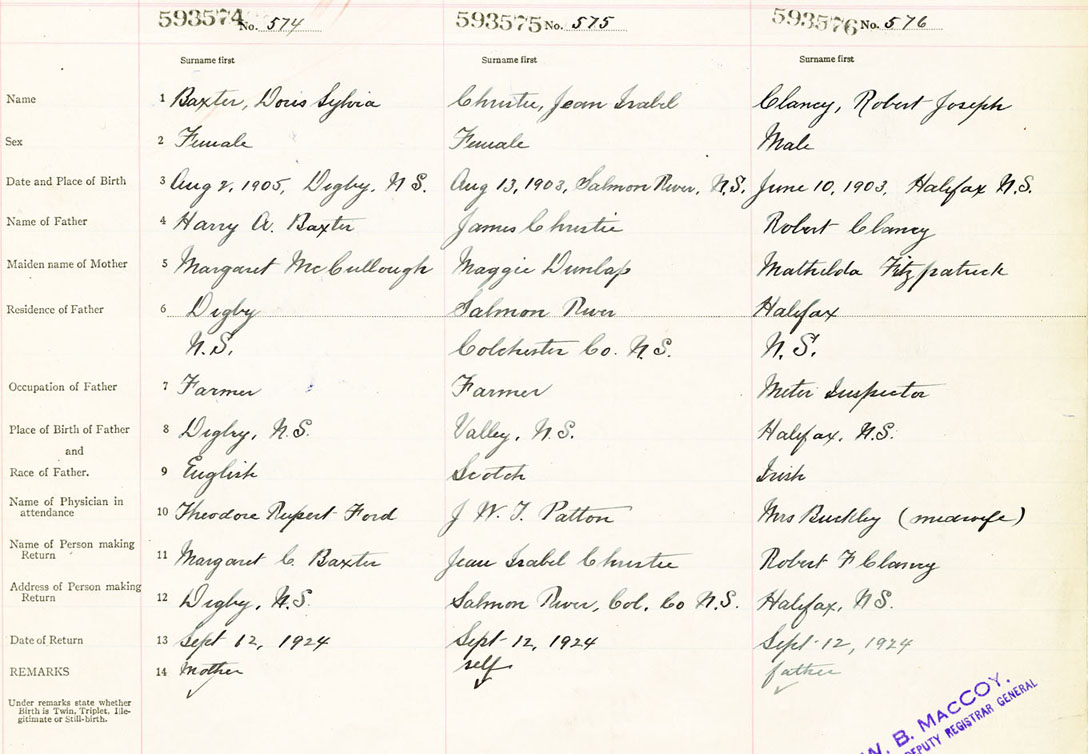 593574 No. 574 593575 No. 575 593576 No. 576
Surname first Surname first Surname first
Name 1 Baxter, Doris Sylvia Christie, Jean Isabel Clancy, Robert Joseph
Sex 2 Female Female Male
Date and Place of Birth 3 Aug 2, 1905, Digby, N.S. Aug 13, 1903, Salmon River, N.S. June 10, 1903, Halifax N.S.
Name of Father 4 Harry A. Baxter James Christie Robert Clancy
Maiden name of Mother 5 Margaret McCullough Maggie Dunlap Mathilda Fitzpatrick
Residence of Father 6 Digby Salmon River Halifax
N.S. Colchester Co. N.S. N.S.
Occupation of Father 7 Farmer Farmer Meter Inspector
Place of Birth of Father 8 Digby, N.S. Valley, N.S. Halifax, N.S.
and
Race of Father. 9 English Scotch Irish
Name of Physician in
attendance 10 Theodore Rupert Ford J W. T. Patton Mrs Buckley (midwife)
Name of Person making
Return 11 Margaret C. Baxter Jean Isabel Christie Robert F Clancy
Address of Person making
Return 12 Digby, N.S. Salmon River, Col. Co N.S. Halifax, N.S.
Date of Return 13 Sept 12, 1924 Sept-12, 1924 Sept-12, 1924
REMARKS 14 Mother self father
Under remarks state whether
Birth is Twin, Triplet, Ille-
gitimate or Still-birth.
W. B. MACCOY.
DEPUTY REGISTRAR GENERAL